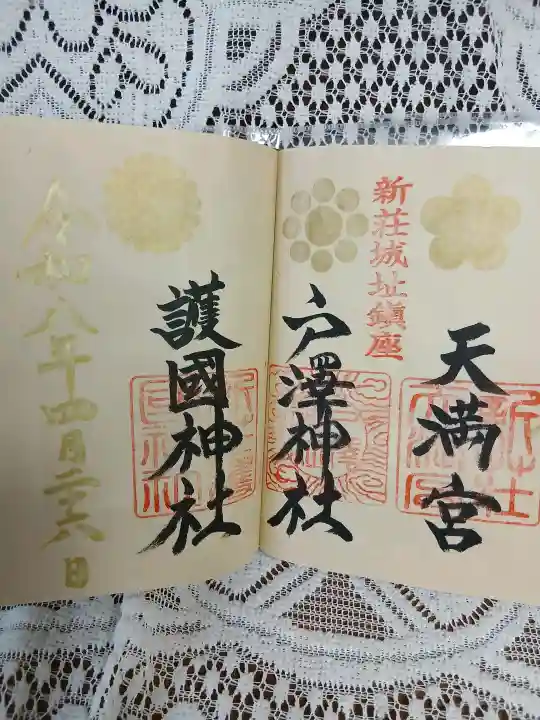 天満宮
新荘城址鎮座
戸澤神社
護國神社
令和八年四月二十六日